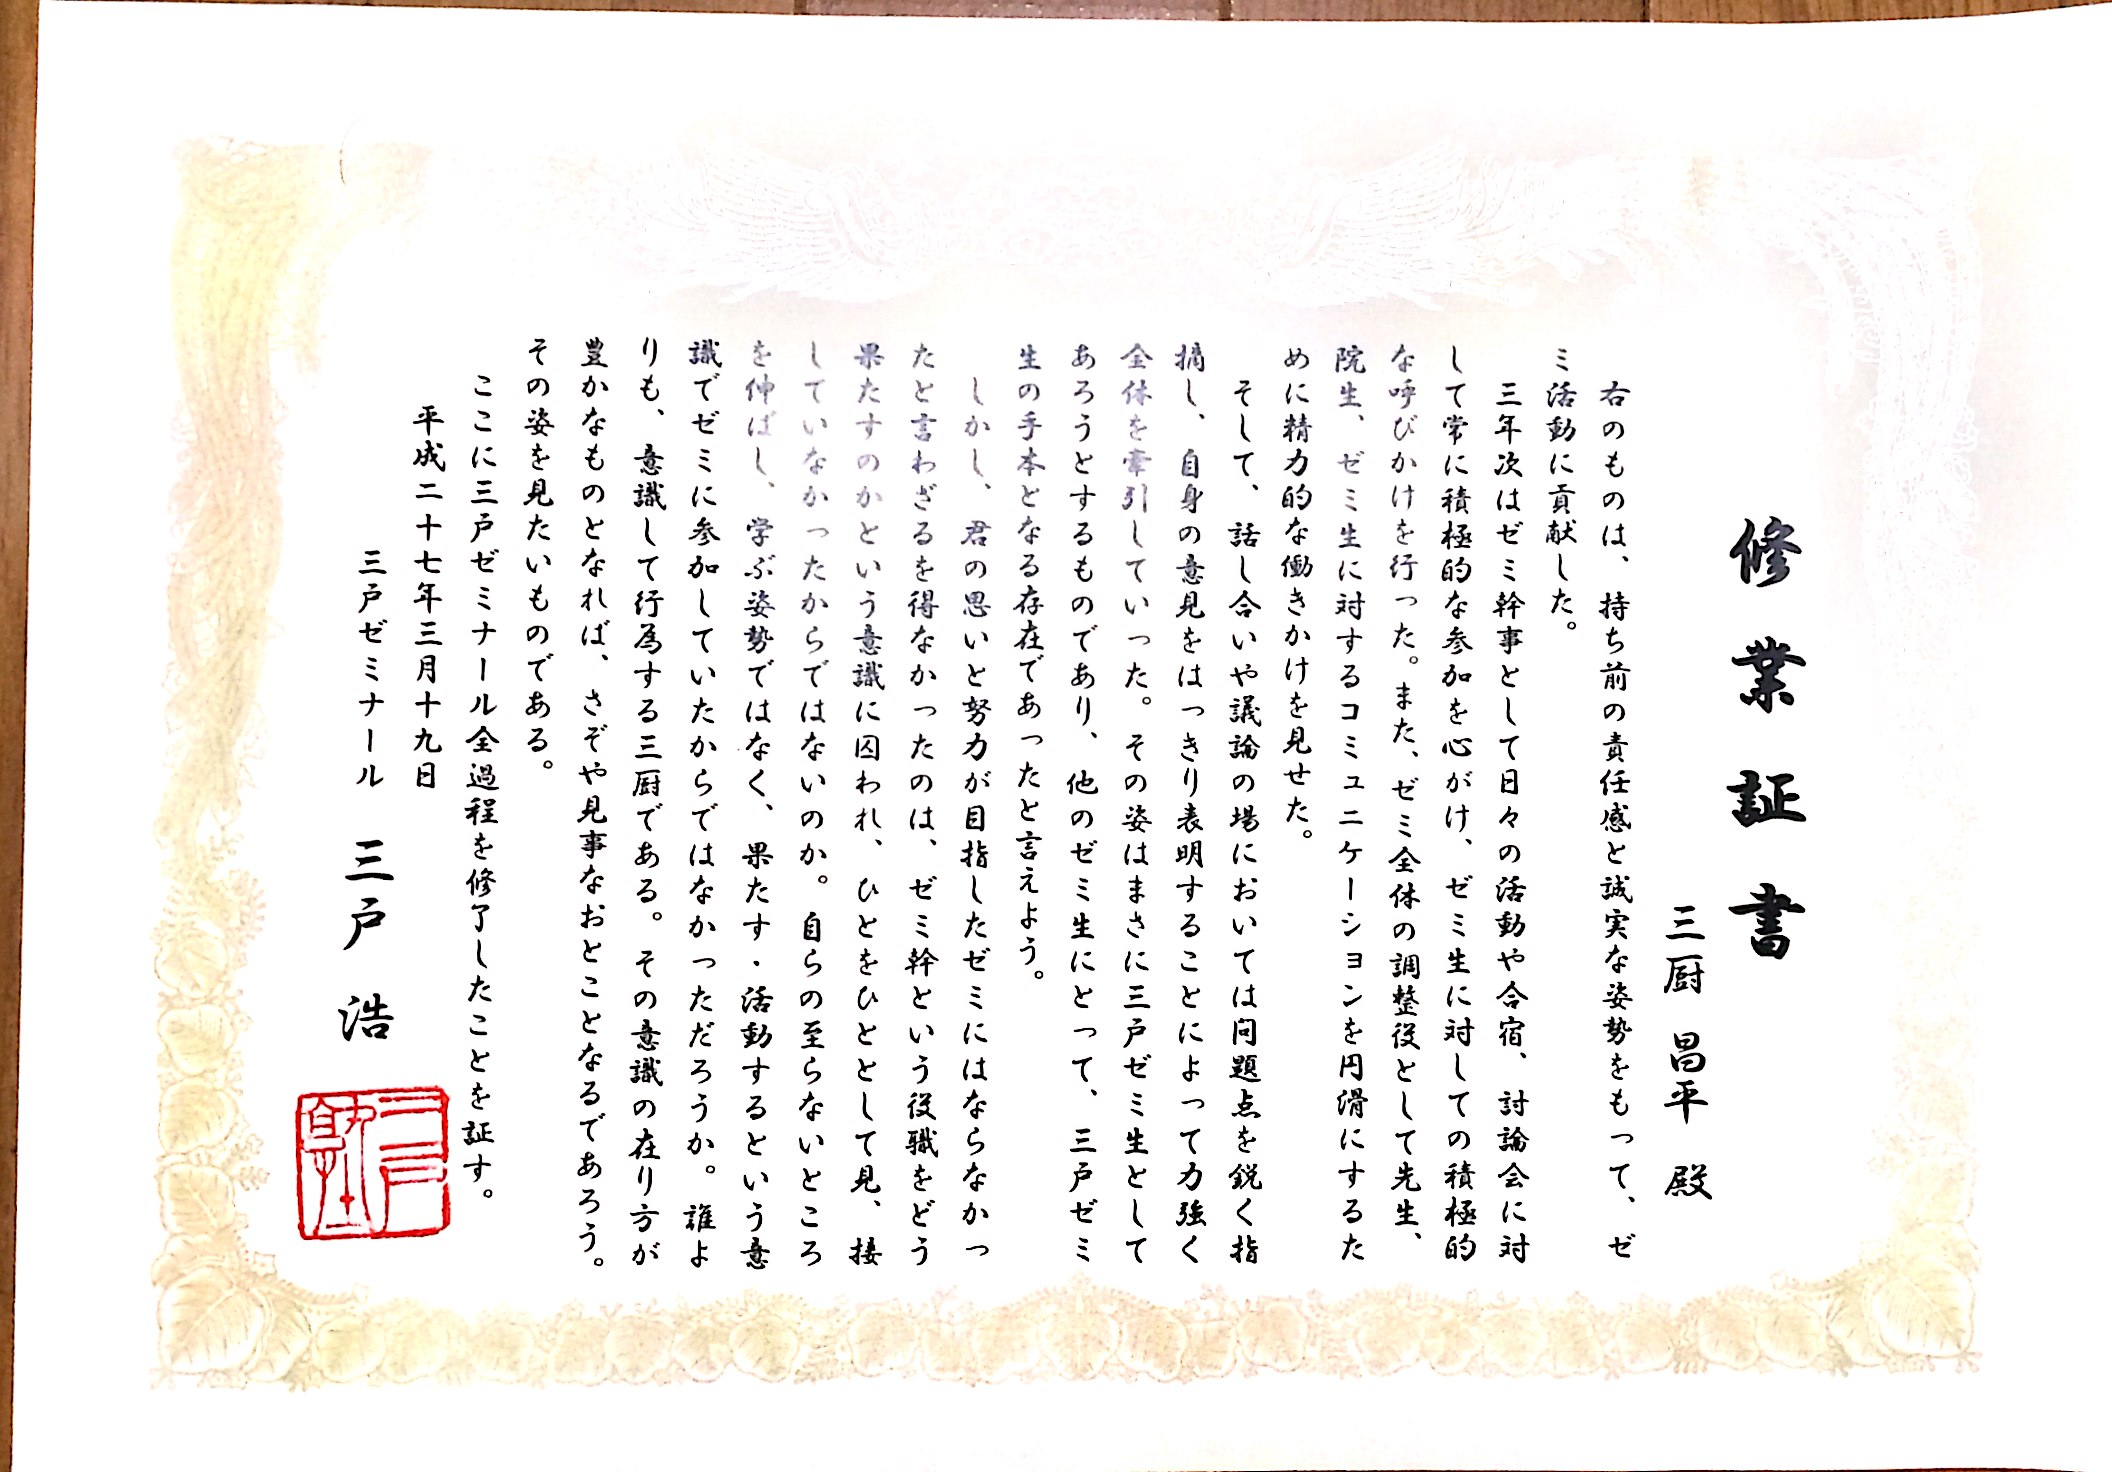 修業証書
三厨 昌平 殿
右のものは、持ち前の責任感と誠実な姿勢をもって、ゼ
ミ活動に貢献した。
三年次はゼミ幹事として日々の活動や合宿、討論会に対
して常に積極的な参加を心がけ、ゼミ生に対しての積極的
な呼びかけを行った。また、ゼミ全体の調整役として先生、
院生、ゼミ生に対するコミュニケーションを円滑にするた
めに精力的な働きかけを見せた。
そして、話し合いや議論の場においては問題点を鋭く指
摘し、自身の意見をはっきり表明することによって力強く
全体を牽引していった。その姿はまさに三戸ゼミ生として
あろうとするものであり、他のゼミ生にとって、三戸ゼミ
生の手本となる存在であったと言えよう。
しかし、君の思いと努力が目指したゼミにはならなかっ
たと言わざるを得なかったのは、ゼミ幹という役職をどう
果たすのかという意識に囚われ、ひとをひととして見、接
していなかったからではないのか。自らの至らないところ
を伸ばし、学ぶ姿勢ではなく、果たす・活動するという意
識でゼミに参加していたからではなかっただろうか。誰よ
りも、意識して行為する三厨である。その意識の在り方が
豊かなものとなれば、さぞや見事なおとことなるであろう。
その姿を見たいものである。
ここに三戸ゼミナール全過程を修了したことを証す。
平成二十七年三月十九日
三戸ゼミナール 三戸 浩
三戸
塾